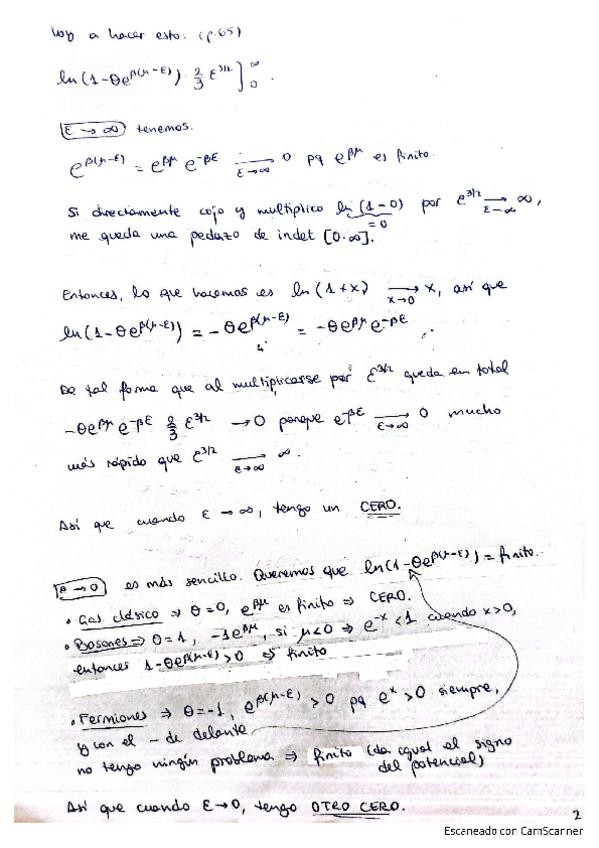 Voy a hacer esto: (p.65)
ln(1-θe^{β(μ-ε)}) · 2/3 ε^{3/2} ]_0^∞ .
ε → ∞ tenemos.
e^{β(μ-ε)} = e^{βμ} e^{-βε} →_{ε→∞} 0 pq e^{βμ} es finito.
Si directamente cojo y multiplico ln(1-0) por ε^{3/2} →_{ε→∞} ∞,
= 0
me queda una pedazo de indet [0·∞].
Entonces, lo que hacemos es ln(1+x) →_{x→0} x, así que
ln(1-θe^{β(μ-ε)}) = -θe^{β(μ-ε)} = -θe^{βμ}e^{-βε}
De tal forma que al multiplicarse por ε^{3/2} queda en total
-θe^{βμ}e^{-βε} 2/3 ε^{3/2} → 0 porque e^{-βε} →_{ε→∞} 0 mucho
más rápido que ε^{3/2} →_{ε→∞} ∞.
Así que cuando ε → ∞, tengo un CERO.
→ 0 es más sencillo. Queremos que ln(1-θe^{β(μ-ε)}) = finito.
• Gas clásico ⇒ θ=0, e^{βμ} es finito ⇒ CERO.
• Bosones ⇒ θ=1, -1e^{βμ}, si μ<0 ⇒ e^{-x}<1 cuando x>0,
entonces 1-θe^{β(μ-ε)}>0 ⇒ finito
• Fermiones ⇒ θ=-1, e^{β(μ-ε)} > 0 pq e^x > 0 siempre,
y con el - de delante
no tengo ningún problema ⇒ finito (da igual el signo
del potencial)
Así que cuando ε→0, tengo OTRO CERO.
2
Escaneado con CamScanner